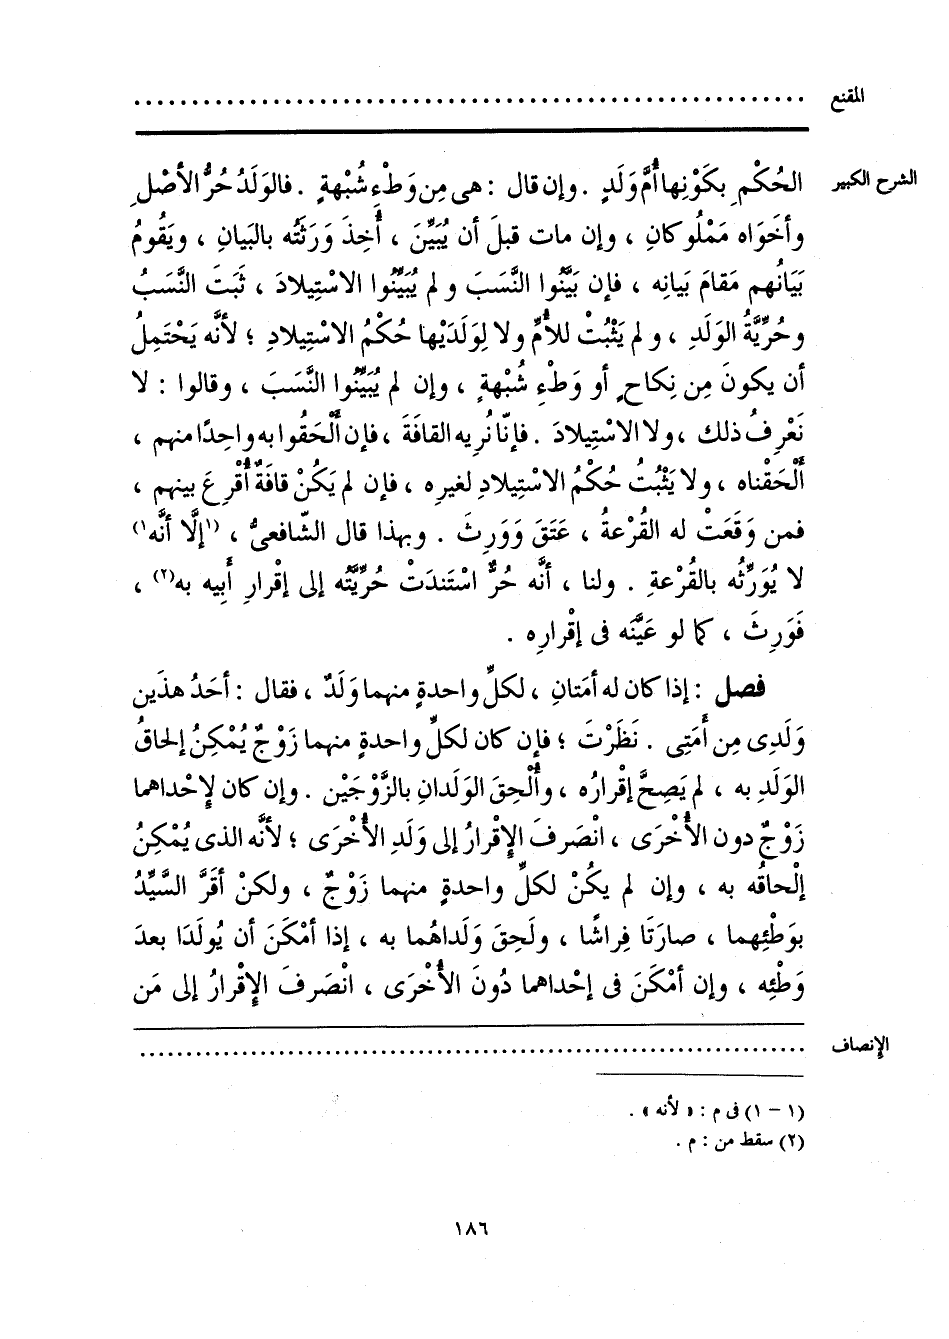 المقنع ................................................................
الشرح الكبير
الحُكْمِ بكَوْنِها أُمَّ وَلَدٍ . وإن قال : هى مِن وَطْءِ شُبْهةٍ . فالوَلَدُ حُرُّ الأصْلِ
وأخَوَاه مَمْلُوكانِ ، وإن مات قبلَ أن يُبَيِّنَ ، أُخِذَ وَرَثَتُه بالبَيانِ ، ويَقُومُ
بَيَانُهم مَقامَ بَيانِه ، فإن بَيَّنُوا النَّسَبَ و لم يُبَيِّنُوا الاسْتِيلادَ ، ثَبَتَ النَّسَبُ
وحُرِّيَّةُ الوَلَدِ ، و لم يَثْبُتْ للأُمِّ ولا لِوَلَدَيْها حُكْمُ الاسْتِيلادِ ؛ لأنَّه يَحْتَمِلُ
أن يكونَ مِن نِكاحٍ أو وَطْءِ شُبْهةٍ ، وإن لم يُبَيِّنُوا النَّسَبَ ، وقالوا : لا
نَعْرِفُ ذلك ، ولا الاسْتِيلادَ . فإنّا نُرِيه القافَةَ ، فإن أَلْحَقُوا به واحِدًا منهم ،
أَلْحَقْناه ، ولا يَثْبُتُ حُكْمُ الاسْتِيلادِ لغيرِه ، فإن لم يَكُنْ قافَةٌ أُقْرِعَ بينهم ،
فمن وَقَعَتْ له القُرْعةُ ، عَتَقَ وَوَرِثَ . وبهذا قال الشّافعىُّ ، (١إلَّا أنَّه١)
لا يُوَرِّثُه بالقُرْعةِ . ولنا ، أنَّه حُرٌّ اسْتَندَتْ حُرِّيَّتُه إلى إقْرارِ أبِيه به(٢) ،
فَوَرِثَ ، كما لو عَيَّنَه فى إقْرارِه .
فصل : إذا كان له أمَتانِ ، لكلِّ واحدةٍ منهما وَلَدٌ ، فقال : أحَدُ هذَين
وَلَدِى مِن أَمَتِى . نَظَرْتَ ؛ فإن كان لكلِّ واحدةٍ منهما زَوْجٌ يُمْكِنُ إلحاقُ
الوَلَدِ به ، لم يَصِحَّ إقْرارُه ، وأُلْحِقَ الوَلَدانِ بالزَّوْجَيْن . وإن كان لإحْداهما
زَوْجٌ دون الأُخْرَى ، انْصَرفَ الإقْرارُ إلى وَلَدِ الأُخْرَى ؛ لأنَّه الذى يُمْكِنُ
إلْحاقُه به ، وإن لم يكُنْ لكلِّ واحدةٍ منهما زَوْجٌ ، ولكنْ أقَرَّ السَّيِّدُ
بوَطْئِهما ، صارَتَا فِراشًا ، ولَحِقَ وَلَداهُما به ، إذا أمْكَنَ أن يُولَدَا بعدَ
وَطْئِه ، وإن أمْكَنَ فى إحْداهما دُونَ الأُخْرَى ، انْصَرفَ الإقْرارُ إلى مَن
الإنصاف ................................................................
(١ - ١) فى م : « لأنه » .
(٢) سقط من : م .
١٨٦